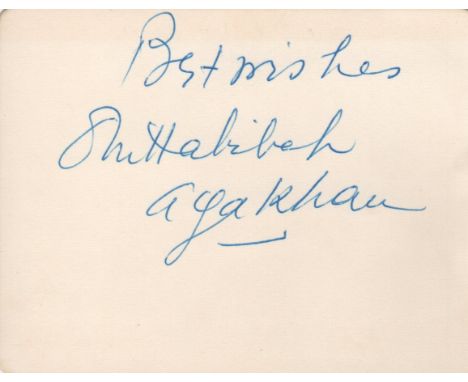 Best wishes
Om Habibeh
Aga Khan